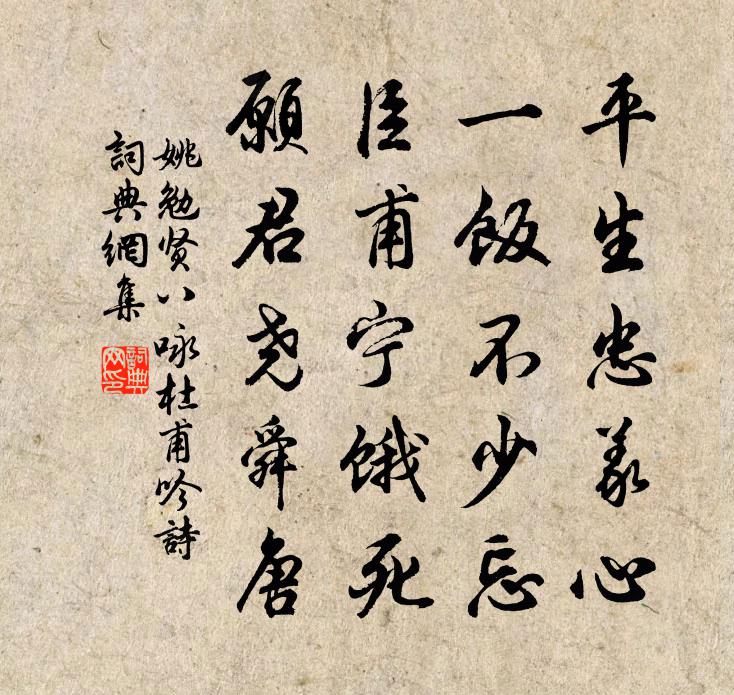 平生忠義心
一飯不少忘
臣甫宁餓死
願君尧舜唐
姚勉贤八咏杜甫吟詩
詞典網集
詞典
网印